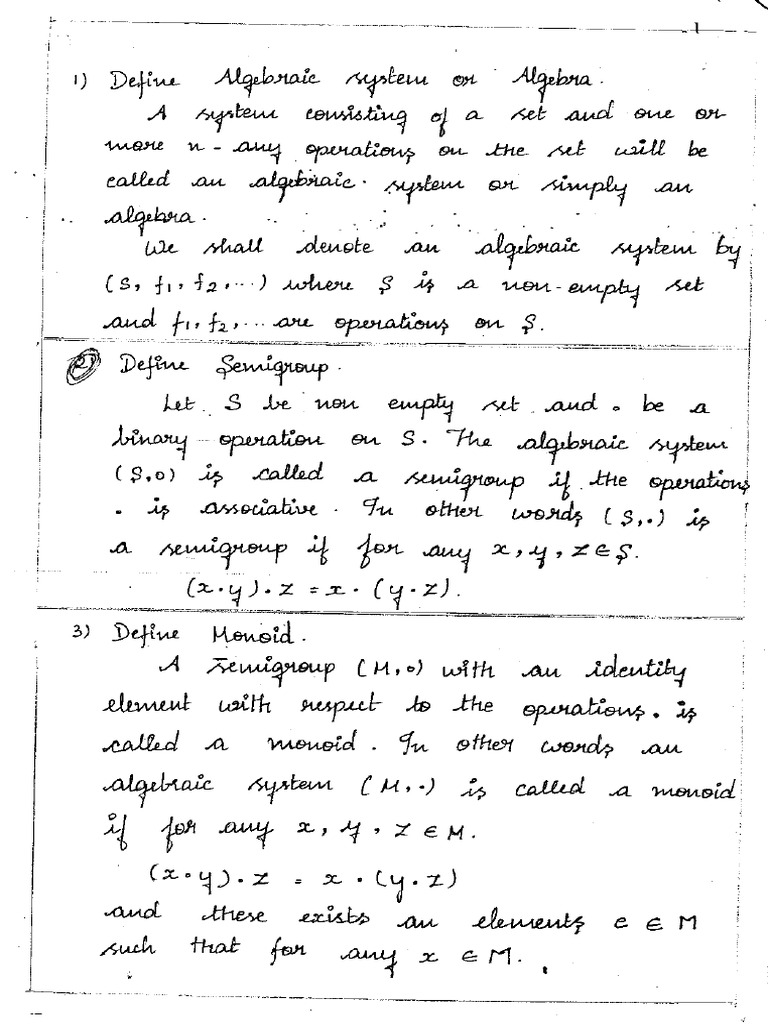 1
1) Define Algebraic system or Algebra.
A system consisting of a set and one or
more n-any operations on the set will be
called an algebraic system or simply an
algebra.
We shall denote an algebraic system by
(S, f1, f2, ...) where S is a non-empty set
and f1, f2, ... are operations on S.
2) Define Semigroup.
Let S be non empty set and o be a
binary operation on S. The algebraic system
(S, o) is called a semigroup if the operations
. is associative. In other words (S, .) is
a semigroup if for any x, y, z ∈ S.
(x . y) . z = x . (y . z).
3) Define Monoid.
A semigroup (M, o) with an identity
element with respect to the operations . is
called a monoid. In other words an
algebraic system (M, .) is called a monoid
if for any x, y, z ∈ M.
(x o y) . z = x . (y . z)
and these exists an elements e ∈ M
such that for any x ∈ M.